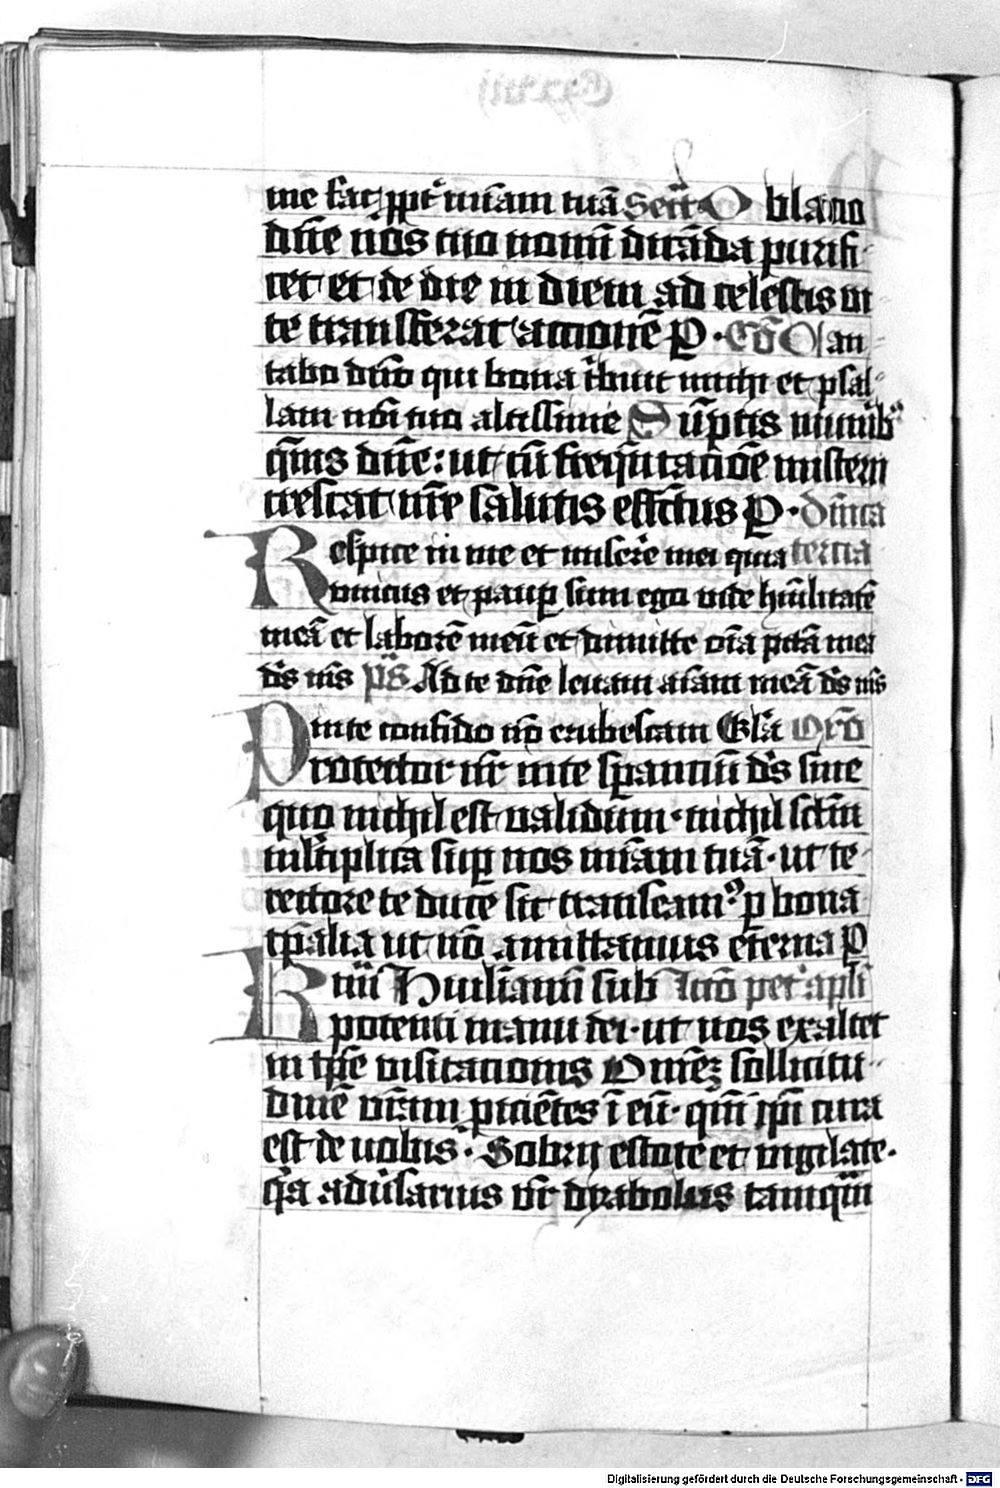 me fac ꝓpt̾ mĩam tuã Secͬ O blatio
dñe nos tuo nomĩ dicãda purifi
cet et de die in diem ad celestis vi
te transferat actionẽ P · Cõ Can
tabo dño qui bona t̾buit michi et psal
lam nõi tuo altissime Sũptis munib⁹
q̃ms dñe : ut cũ freqũtacõe misterii
crescat nr̃e salutis effc̃tus P · dñica
Respice in me et misere mei quia tercia
vnicus et paup sum ego vide hũilitatẽ
meã et laborẽ meũ et dimitte oĩa pctã mea
ds̃ ms̃ ps̃ Ad te dñe leuaui aĩam meã ds̃ ms̃
in te confido nõ erubescam Gl̃a Orõ
Protector nr̃ in te sperantiũ ds̃ sine
quo nichil est validum · nichil sc̃tm
mltiplica sup nos mĩam tuã · ut te
rectore te duce sic transeam⁹ p bona
tp̃alia ut nõ amittamus eterna P
Krm̃i Humiliamĩ sub Lcõ petͥ apl̃i
potenti manu dei · ut vos exaltet
in tp̃e visitacionis Omẽz sollicitu
dinẽ vr̃am ꝓicietes ĩ eũ · qm̃ ip̃i cura
est de vobis · Sobrij estote et vigilate ·
q̃a adũsarius vr̃ dyabolus tamqm̃
Digitalisierung gefördert durch die Deutsche Forschungsgemeinschaft - DFG